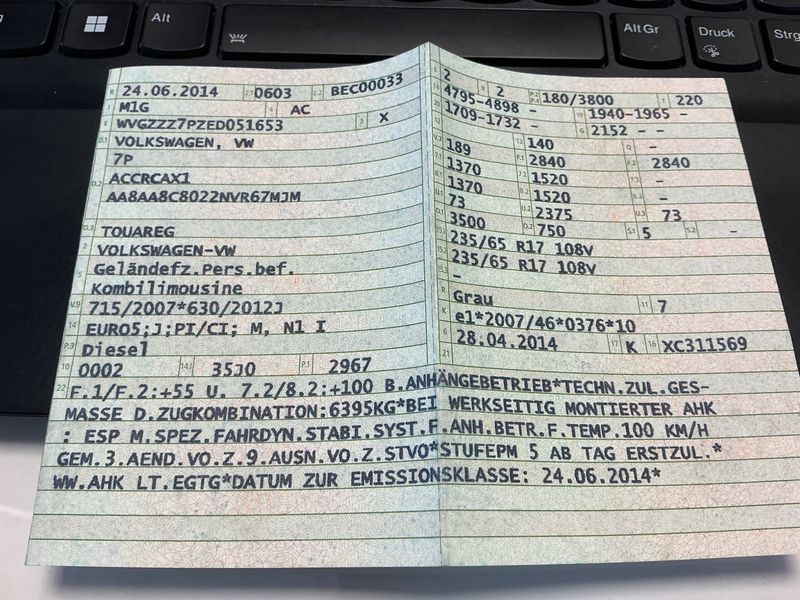 Alt
Alt Gr
Druck
Strg
B 24.06.2014 2.1 0603 2.2 BEC00033
J M1G 4 AC
E WVGZZZ7PZED051653 3 X
D.1 VOLKSWAGEN, VW
7P
D.2 ACCRCAX1
AA8AA8C8022NVR67MJM
D.3 TOUAREG
2 VOLKSWAGEN-VW
5 Geländefz.Pers.bef.
Kombilimousine
V.9 715/2007*630/2012J
14 EURO5;J;PI/CI; M, N1 I
P.3 Diesel
10 0002 14.1 35J0 P.1 2967
L 2 9 2 P.2 P.4 180/3800 T 220
18 4795-4898 – 19 1940-1965 –
20 1709-1732 – G 2152 – –
12 – 13 140 Q –
V.7 189 F.1 2840 F.2 2840
7.1 1370 7.2 1520 7.3 –
8.1 1370 8.2 1520 8.3 –
U.1 73 U.2 2375 U.3 73
O.1 3500 O.2 750 S.1 5 S.2 –
15.1 235/65 R17 108V
15.2 235/65 R17 108V
15.3 –
R Grau 11 7
K e1*2007/46*0376*10
6 28.04.2014 17 K 16 XC311569
21
22 F.1/F.2:+55 U. 7.2/8.2:+100 B.ANHÄNGEBETRIEB*TECHN.ZUL.GES-
MASSE D.ZUGKOMBINATION:6395KG*BEI WERKSEITIG MONTIERTER AHK
: ESP M.SPEZ.FAHRDYN.STABI.SYST.F.ANH.BETR.F.TEMP.100 KM/H
GEM.3.AEND.VO.Z.9.AUSN.VO.Z.STVO*STUFEPM 5 AB TAG ERSTZUL.*
WW.AHK LT.EGTG*DATUM ZUR EMISSIONSKLASSE: 24.06.2014*